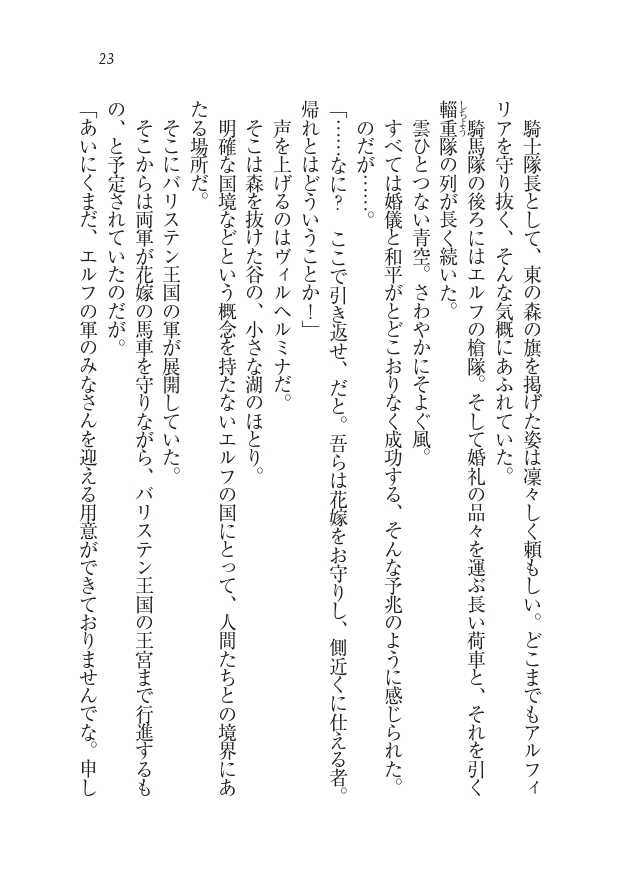 23
騎士隊長として、東の森の旗を掲げた姿は凜々しく頼もしい。どこまでもアルフィ
リアを守り抜く、そんな気概にあふれていた。
騎馬隊の後ろにはエルフの槍隊。そして婚礼の品々を運ぶ長い荷車と、それを引く
輜重隊の列が長く続いた。
しちょう
雲ひとつない青空。さわやかにそよぐ風。
すべては婚儀と和平がとどこおりなく成功する、そんな予兆のように感じられた。
のだが……。
「……なに？　ここで引き返せ、だと。吾らは花嫁をお守りし、側近くに仕える者。
帰れとはどういうことか！」
声を上げるのはヴィルヘルミナだ。
そこは森を抜けた谷の、小さな湖のほとり。
明確な国境などという概念を持たないエルフの国にとって、人間たちとの境界にあ
たる場所だ。
そこにバリステン王国の軍が展開していた。
そこからは両軍が花嫁の馬車を守りながら、バリステン王国の王宮まで行進するも
の、と予定されていたのだが。
「あいにくまだ、エルフの軍のみなさんを迎える用意ができておりませんでな。申し